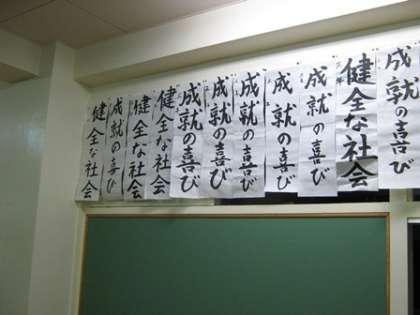 成就の喜び
健全な社会
成就の喜び
成就の喜び
成就の喜び
成就の喜び
成就の喜び
健全な社会
健全な社会
成就の喜び
健全な社会